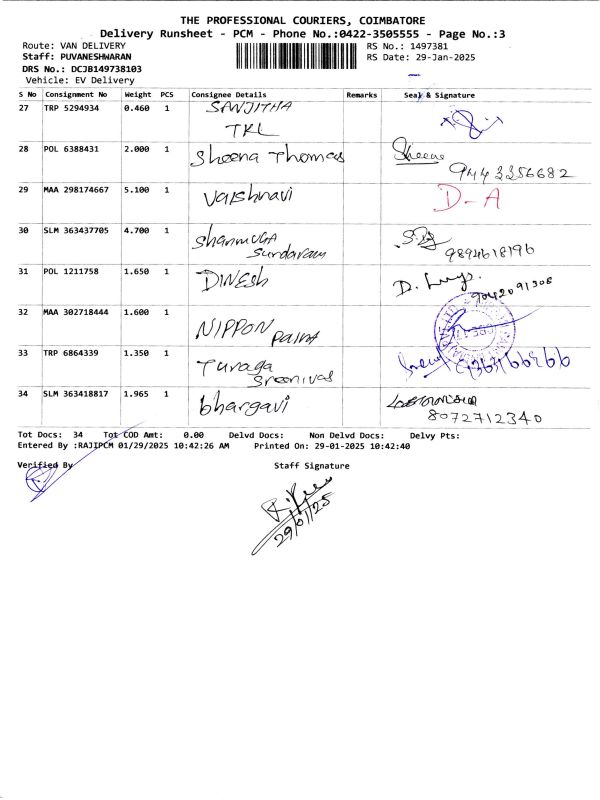 THE PROFESSIONAL COURIERS, COIMBATORE
Delivery Runsheet - PCM - Phone No.:0422-3505555 - Page No.:3
Route: VAN DELIVERY RS No.: 1497381
Staff: PUVANESHWARAN RS Date: 29-Jan-2025
DRS No.: DCJB149738103
Vehicle: EV Delivery
S No Consignment No Weight PCS Consignee Details Remarks Seal & Signature
27 TRP 5294934 0.460 1 SANJITHA
TKL
28 POL 6388431 2.000 1 Sheena Thomas Sheena
9443356682
29 MAA 298174667 5.100 1 Vaishnavi D-A
30 SLM 363437705 4.700 1 Shanmuga
Sundaram 9894618196
31 POL 1211758 1.650 1 DINESh D.
9042091308
32 MAA 302718444 1.600 1 NIPPON Paint
33 TRP 6864339 1.350 1 Turaga
Sreenivas
34 SLM 363418817 1.965 1 bhargavi
8072712340
Tot Docs: 34 Tot COD Amt: 0.00 Delvd Docs: Non Delvd Docs: Delvy Pts:
Entered By :RAJIPCM 01/29/2025 10:42:26 AM Printed On: 29-01-2025 10:42:40
Verified By Staff Signature
29/01/25